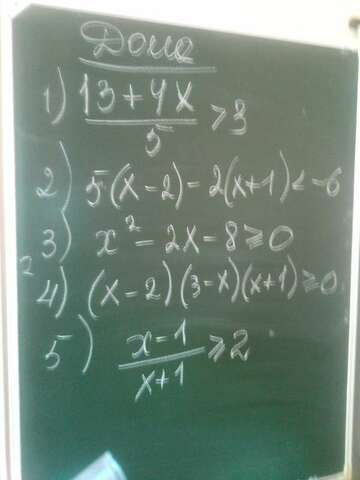 Дома
1) (13+4x)/5 > 3
2) 5(x-2) - 2(x+1) < -6
3) x² - 2x - 8 ≥ 0
4) (x-2)(3-x)(x+1) ≥ 0
5) (x-1)/(x+1) ≥ 2